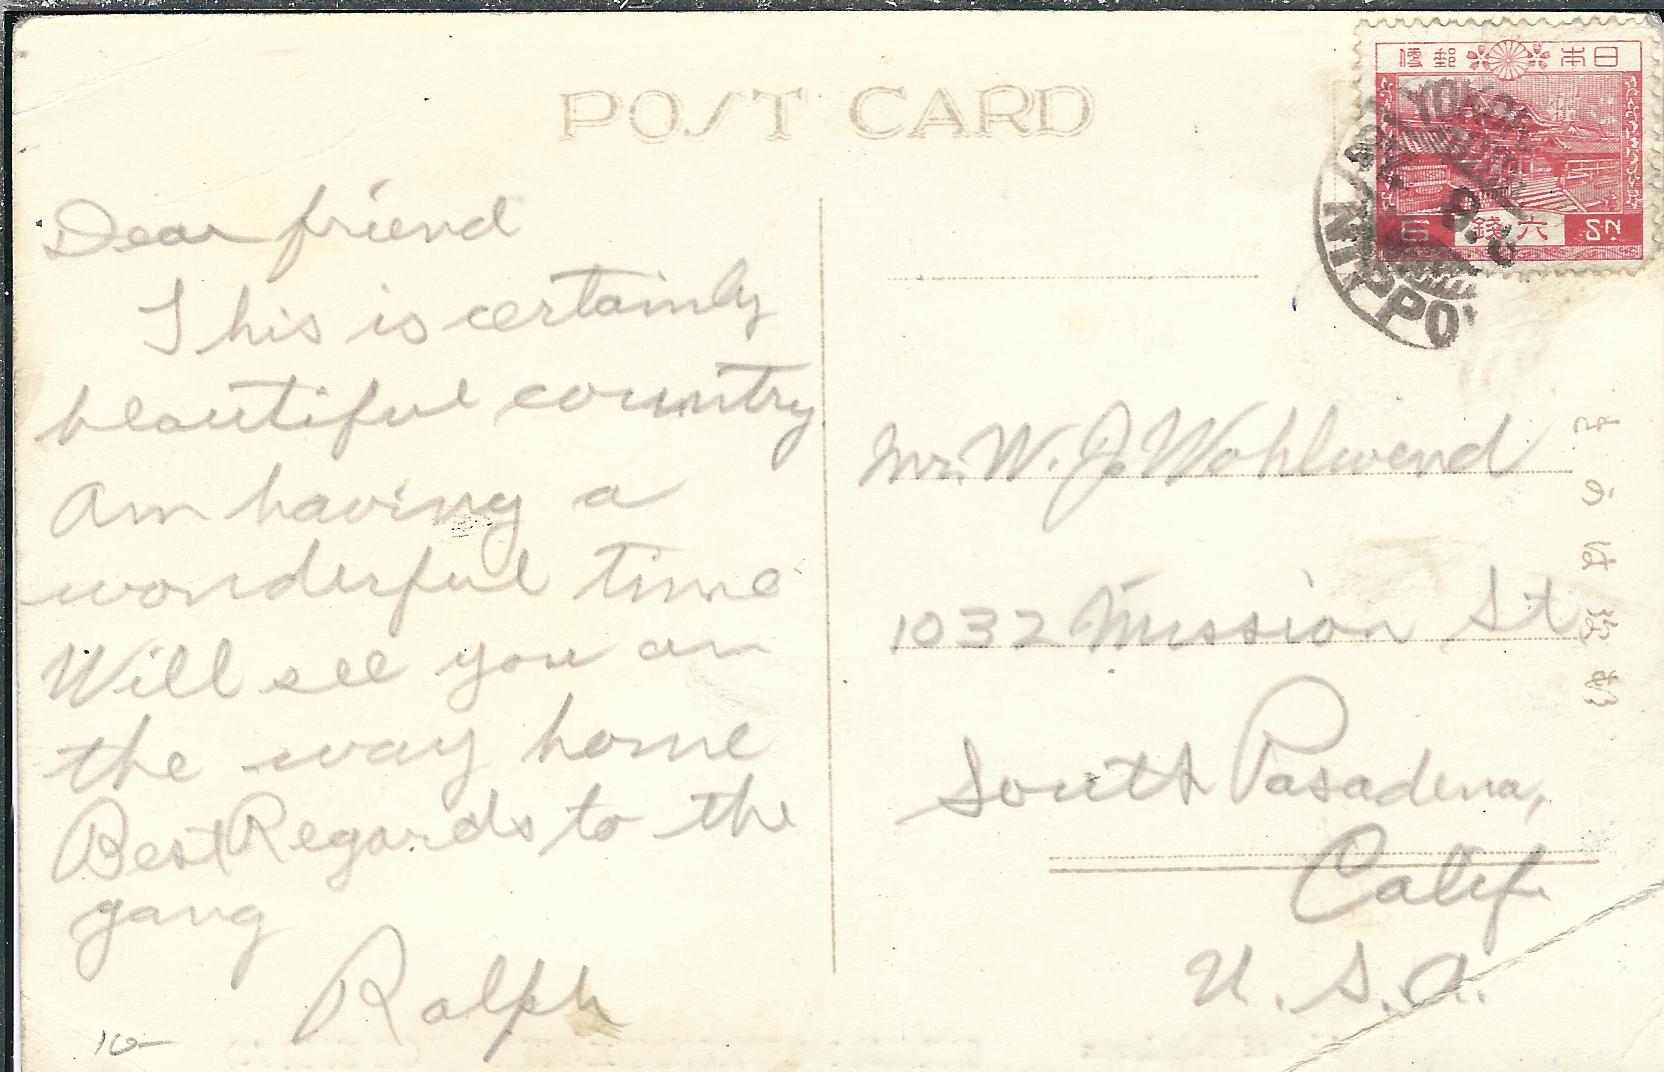 POST CARD
日本郵便
六錢
6
SN.
YOKOHAMA
NIPPON
Dear friend
This is certainly
beautiful country
am having a
wonderful time
Will see you on
the way home
Best Regards to the
gang
Ralph
10-
Mr. W. J. Wohlwend
1032 Mission St
South Pasadena,
Calif.
U. S. A.